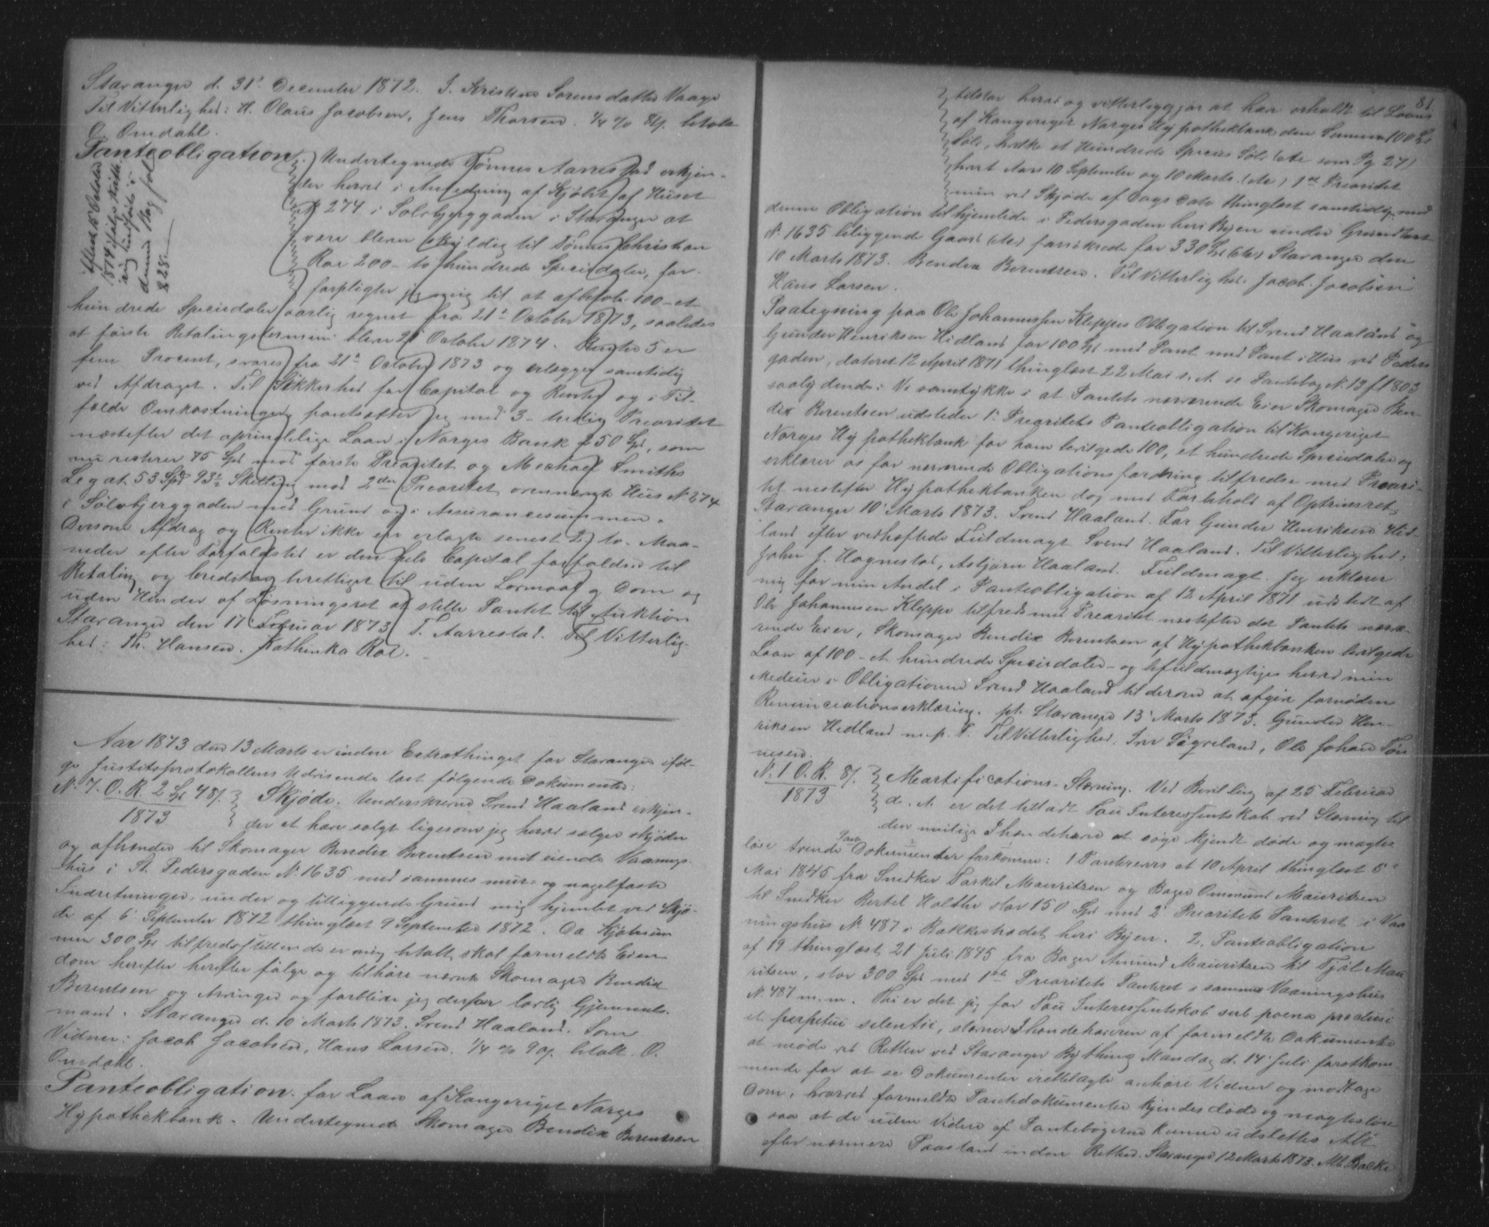 Stavanger d. 31' December 1872. J. Kristine Sorensdatter Vaage
Til Vitterlighed: H. Olaus Jacobsen, Jens Thorsen. ¼ % betalt
O. Omdahl.
Panteobligation. Undertegnede Tönnes Aarrestad erkjen-
der herved i Anledning af Kjöbet af Huset
N 274 i Solvbjerggaden i Stavanger at
være bleven skyldig til Tönnes Christian
Roe 200 - to hundrede Speciedaler, for-
forpligter jeg mig til at afbetale 100 - et
hundrede Speciedaler aarlig regnet fra 21' October 1873, saaledes
at förste Betalingstermin bliver 21 October 1874. Renter 5 er
fem Procent, svares fra 21' October 1873 og erlægges samtidig
ved Afdraget. Til Sikkerhed for Capital og Renter og i Til-
fælde Omkostninger pantsætter jeg med 3- tredie Prioritet
næstefter det oprindelige Laan i Norges Bank 150 Spd, som
nu resterer 75 Spd med förste Prioritet og Michael Smiths
Legat 53 Spd 93½ Skilling med 2den Prioritet, ovennævnte Huus N 274
i Sölvbjerggaden med Grund og i Assurancesummen.
Dersom Afdrag og Renter ikke er erlagte senest 2, to- Maa-
neder efter Forfaldstid er den hele Capital forfalden til
Betaling og Creditor berettiget til uden Lovmaal og Dom og
uden Hinder af Løsningsret at stille Pantet til Auktion
Stavanger den 17 Februar 1873. T. Aarrestad. Til Vitterlig-
hed: Th. Hansen. Kathinka Roe.
Aar 1873 den 13 Marts er inden Extrathinget for Stavanger iföl-
ge Justitsprotokollens Udvisende læst følgende Dokumenter:
N. 7. O. R. 2 Spd 48/. Skjöde. Underskrevne Svend Haaland erkjen-
1873 der at have solgt ligesom jeg herved sælger skjöder
og afhænder til Skomager Bendix Berentsen mit eiende Vaanings-
huus i St. Pedersgaden N. 1635 med sammes muur- og nagelfaste
Indretninger, under og tilliggende Grund mig hjemlet ved Skjö-
de af 6 September 1872 thinglæst 9 September 1872. Da Kjöbesum-
men 300 Spd tilfredsstillende er mig betalt, skal formeldte Eien-
dom herefter herefter fölge og tilhöre nævnte Skomager Bendix
Berentsen og Arvinger og forbliver jeg derfor lovlig Hjemmels-
mand. Stavanger d. 10 Marts 1873. Svend Haaland. Som
Vidner: Jacob Jacobsen, Hans Larsen. ¼ % 90/. betalt. O.
Omdahl.
Panteobligation for Laan af Kongeriget Norges
Hypothekbank. Undertegnede Skomager Bendix Berentsen
81
tilstaar herved og vitterliggjør at have erholdt til Laans
af Kongeriget Norges Hypothekbank den Summa 100 Spd
Sölv, hvilke et Hundrede Species Sölv (etc som Pg 271
hvert Aars 10 September og 10 Marts (etc) 1ste Prioritet
min ved Skjöde af Dags Dato thinglæst samtidig med
denne Obligation tilhjemlede i Pedersgaden her i Byen under Grundtaxt
N. 1635 beliggende Gaard (etc) forsikrede for 330 Spd (etc) Stavanger den
10 Marts 1873. Bendix Berentsen. Til Vitterlighed: Jacob Jacobsen
Hans Larsen.
Paategning paa Ole Johannessen Kleppes Obligation til Svend Haaland og
Gunder Henriksen Hidland for 100 Spd med Pant med Pant i Huus ved Peders-
gaden, dateret 12 April 1871 thinglæst 22 Mai s. A. se Pantebog N. 12 f 1803
saalydende: Vi samtykke i at Pantets nærværende Eier Skomager Ben-
dix Berentsen udsteder 1' Prioritets Panteobligation til Kongeriget
Norges Hypothekbank for ham bevilgede 100, et hundrede Speciedaler og
erklærer os for nærværende Obligations fordring tilfredse med Priori-
tet næstefter Hypothekbanken dog med Forbehold af Opträdsret.
Stavanger 10' Marts 1873. Svend Haaland. For Gunder Henriksen Hid-
land efter vedheftede Fuldmagt Svend Haaland. Til Vitterlighed:
John J. Hognestad, Asbjørn Haaland. Fuldmagt. Jeg erklærer
mig for min Andel i Panteobligation af 12 April 1871 udstedt af
Ole Johannesen Kleppe tilfreds med Prioritet næstefter det Pantets nærvæ-
rende Eier, Skomager Bendix Berentsen af Hypothekbanken bevilgede
Laan af 100 - et hundrede Speciedaler - og befuldmægtiges herved min
Medeier i Obligationen Svend Haaland til derom at afgive fornøden
Renunciationserklæring. pt. Stavanger 13' Marts 1873. Gunder Hen-
riksen Hidland m. p. P. Til Vitterlighed: Iver Søyeland, Ole Johan Tön-
nesen.
N. 1 O. R. 8/. Mortifications-Stævning. Ved Bevilling af 25 Februar
1873 d. A. er det tilladt Tou Interessentskab ved Stævning til
den mulige Ihændehaver at søge kjendt døde og magtes-
løse tvende Pante Dokumenter forkomne: 1 Pantebrev af 10 April thinglæst 5'
Mai 1845 fra Snedker Torkil Mauritzen og Bager Ommund Mauritzen
til Snedker Bertel Holthe stor 150 Spd med 2' Prioritets Panteret i Vaa-
ningshuus N. 487 i Bakkestrædet her i Byen. 2, Panteobligation
af 19 thinglæst 21 Juli 1845 fra Bager Amund Mauritzen til Tjöl Mau-
ritzen, stor 300 Spd med 1ste Prioritets Panteret i samme Vaaningshuus
N. 487 m. m. Thi er det jeg for Tou Interessentskab sub poena præclusi
et perpetui silentii, stævner Ihændehaveren af formeldte Dokumenter
at møde ved Retten ved Stavanger Bything Mandag d. 14' Juli førstkom-
mende for at se Dokumenter irettelagte anhøre Vidner og modtage
Dom, hvorved formeldte Pantedokumenter kjendes døde og magtesløse
saa at de uden Videre af Pantebøgerne kunne udslettes Alt
efter nærmere Paastand inden Retten. Stavanger 12 Marts 1873. Ml. Bakke